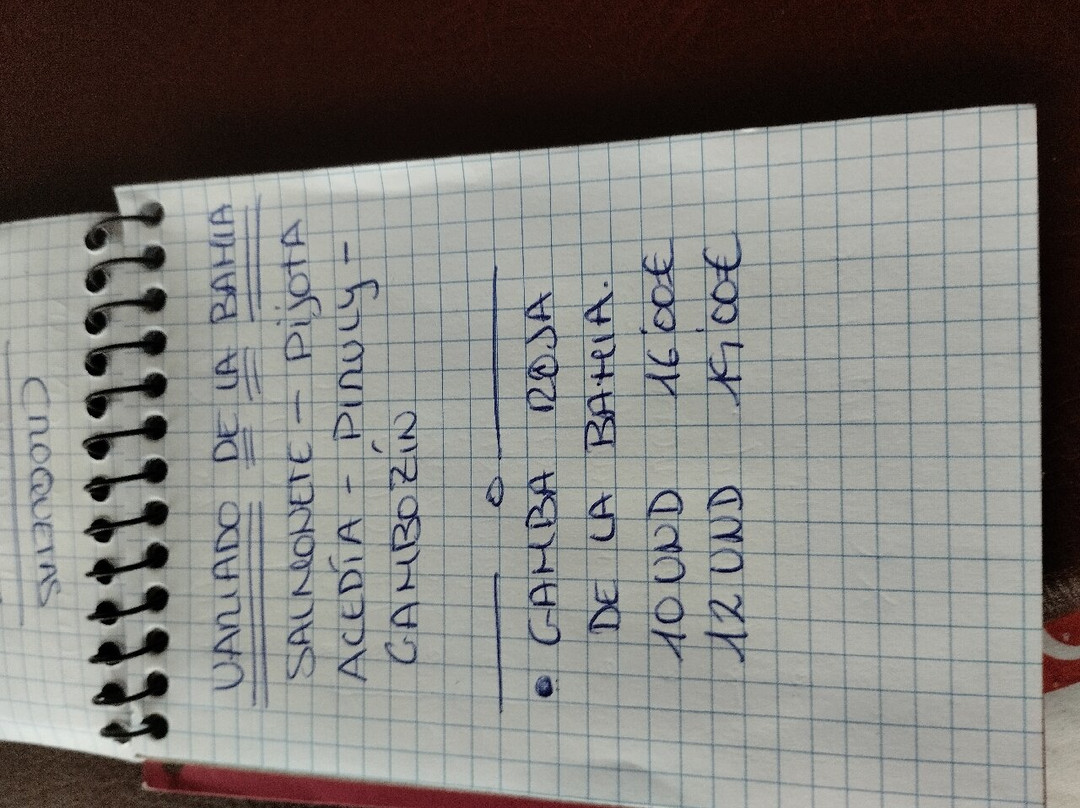 CROQUETAS
VARIADO DE LA BAHIA
SALMONETE - PIJOTA
ACEDÍA - PIRULY -
GAMBOZÍN
• GAMBA ROJA
DE LA BAHIA.
10 UND 16'00€
12 UND